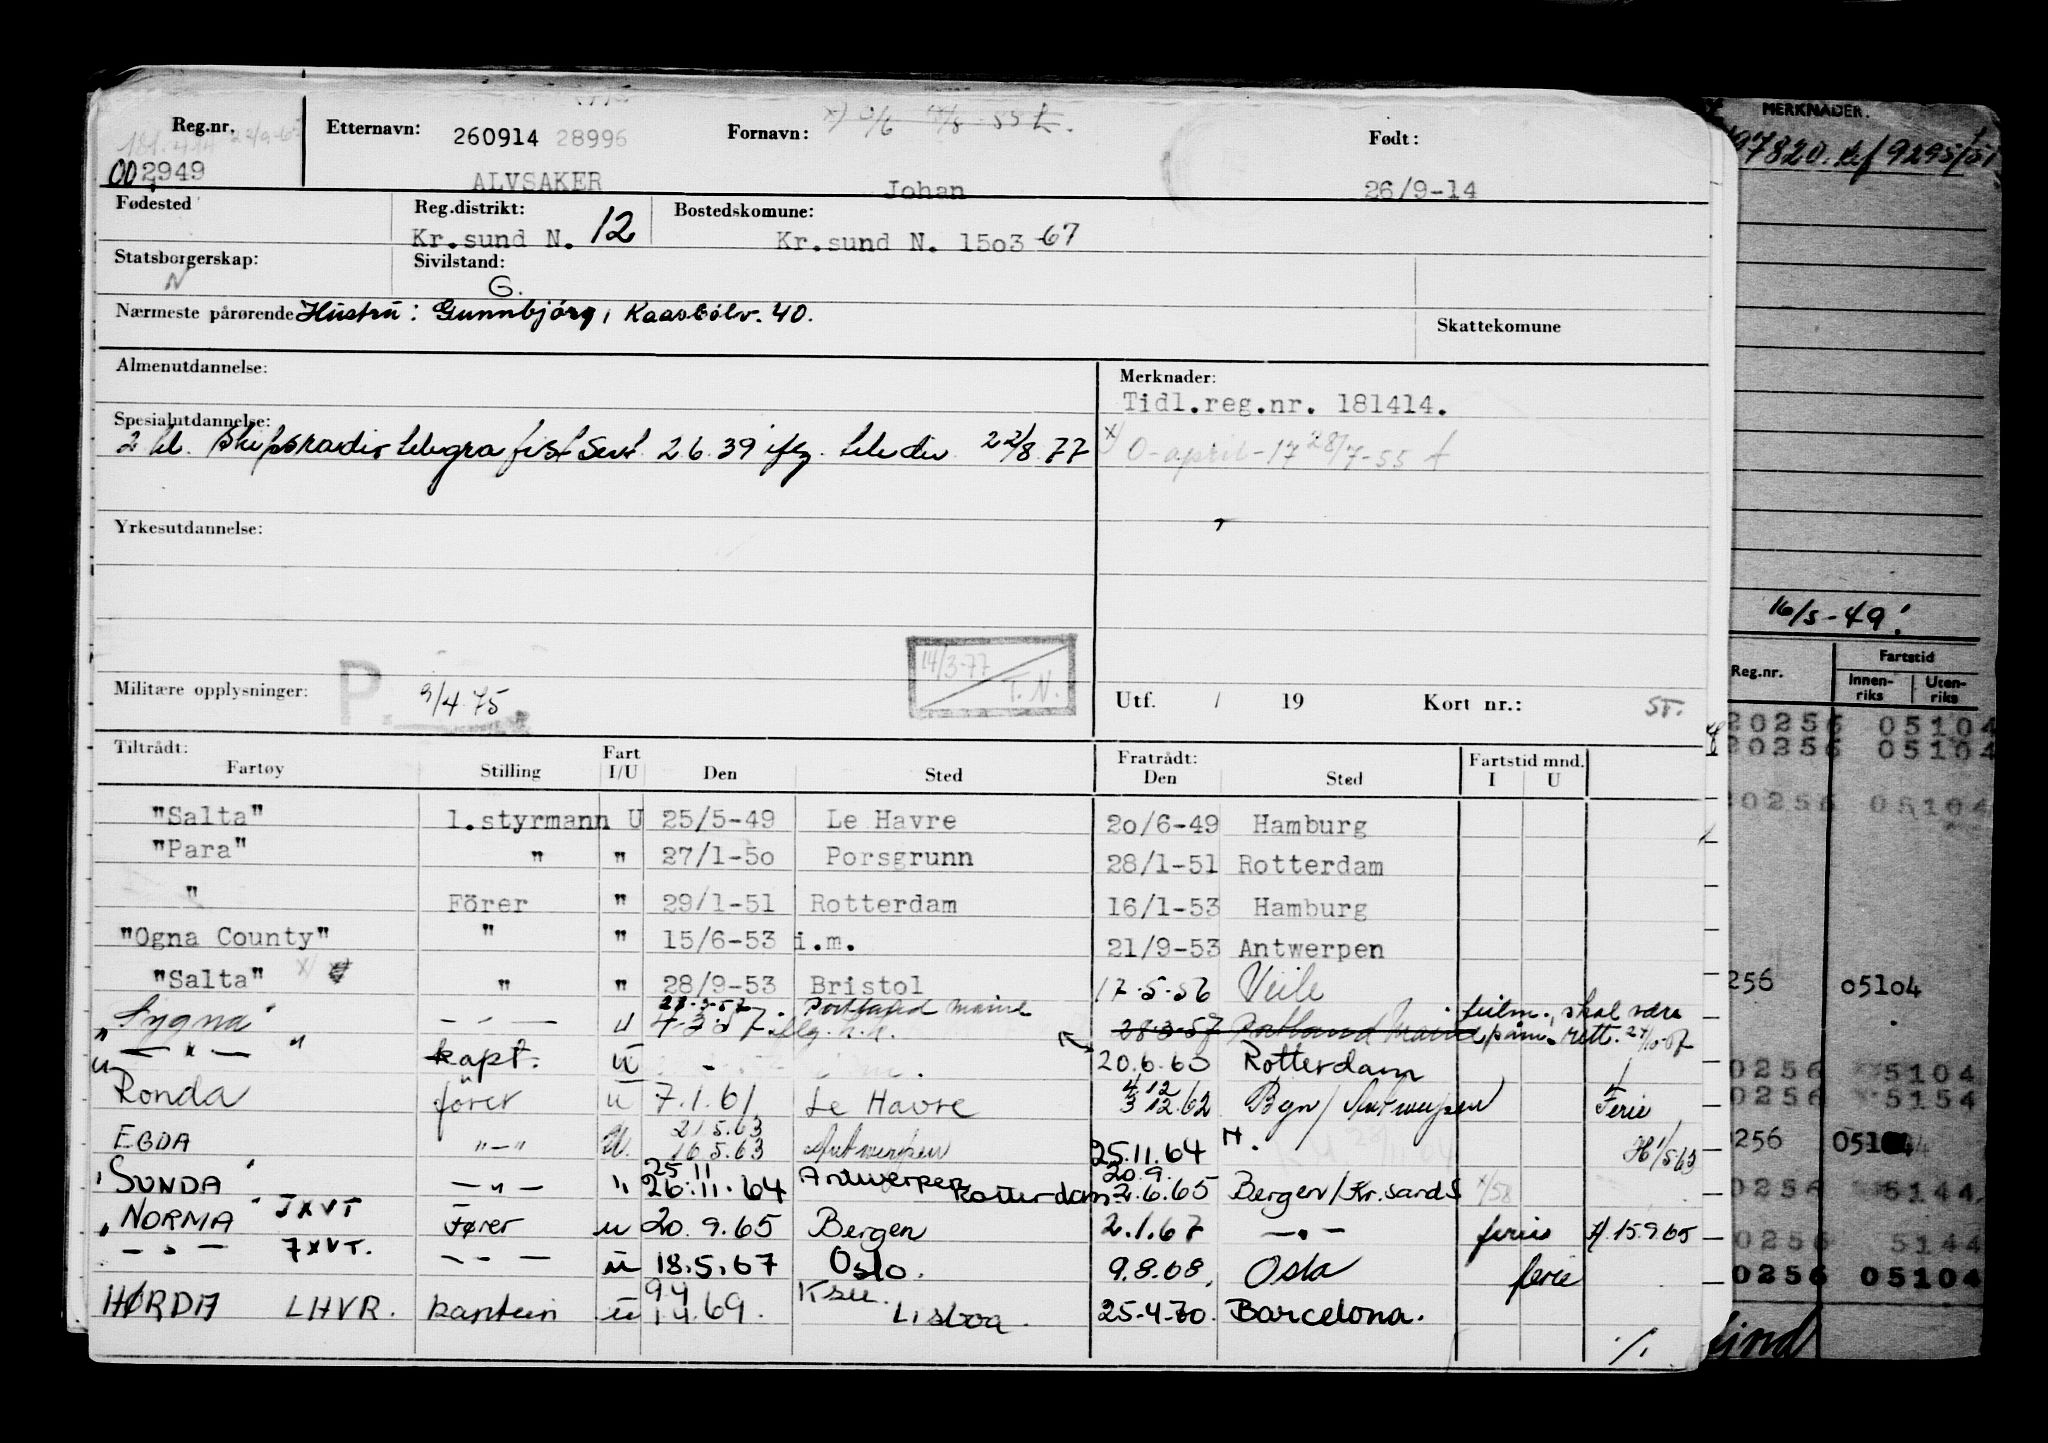 Reg.nr. Etternavn: 260914 28996 Fornavn: Født:
002949 ALVSAKER Johan 26/9-14
Fødested Reg.distrikt: Bostedskomune:
Kr.sund N. 12 Kr.sund N. 1503-67
Statsborgerskap: Sivilstand:
N G.
Nærmeste pårørende Hustru: Gunnbjörg, Kaasbölv. 40. Skattekomune
Almenutdannelse: Merknader:
Tidl.reg.nr. 181414.
Spesialutdannelse:
2 kl. Skipsradiotelegrafist Sert. 2.6.39 iflg. teledir 22/8.77 x) 0-april-17 28/7-55
Yrkesutdannelse:
14/3-77
T.N.
Militære opplysninger: P. 9/4 75. Utf. / 19 Kort nr.: ST.
Tiltrådt: Fartøy Stilling Fart I/U Den Sted Fratrådt: Den Sted Fartstid mnd. I U
"Salta" 1.styrmann U 25/5-49 Le Havre 20/6-49 Hamburg
"Para" " " 27/1-50 Porsgrunn 28/1-51 Rotterdam
" Förer " 29/1-51 Rotterdam 16/1-53 Hamburg
"Ogna County" " " 15/6-53 i.m. 21/9-53 Antwerpen
"Salta" x) " " 28/9-53 Bristol 17-5-56 Veile
28-3-57 Portland Maine feilm., skal være
"Sygna" - " - u 4-3-57 28-3-57 Portland Maine påm. rett.
- " - kapt. u 20.6.60 Rotterdam
Ronda förer u 7.1.61 Le Havre 4.12 3.12.62 Bgn/Antwerpen Ferie
21.5.63
EGDA "-" U. 16.5.63 Antwerpen 25.11.64 H.
25.11 20.9.
"SUNDA" - " - " 26.11.64 Antwerpen Rotterdam 2.6.65 Bergen/Kr.sand S
"NORMA" JXVT Fører u 20.9.65 Bergen 2.1.67 - " - ferie x) 15.9.65
- " - JXVT. - " - u 18.5.67 Oslo. 9.8.68. Oslo ferie
9.4 Ksu.
HØRDA LHVR. kaptein u 1.4.69. Lisboa. 25-4-70. Barcelona.
MERKNADER.
97820. ref 9295/51
16/5-49!
Reg.nr. Fartstid
Innen-riks Uten-riks
20256 05104
20256 05104
20256 05104
256 05104
0256 5104
0256 5154
256
0256 5144
0256 5144
0256 05104